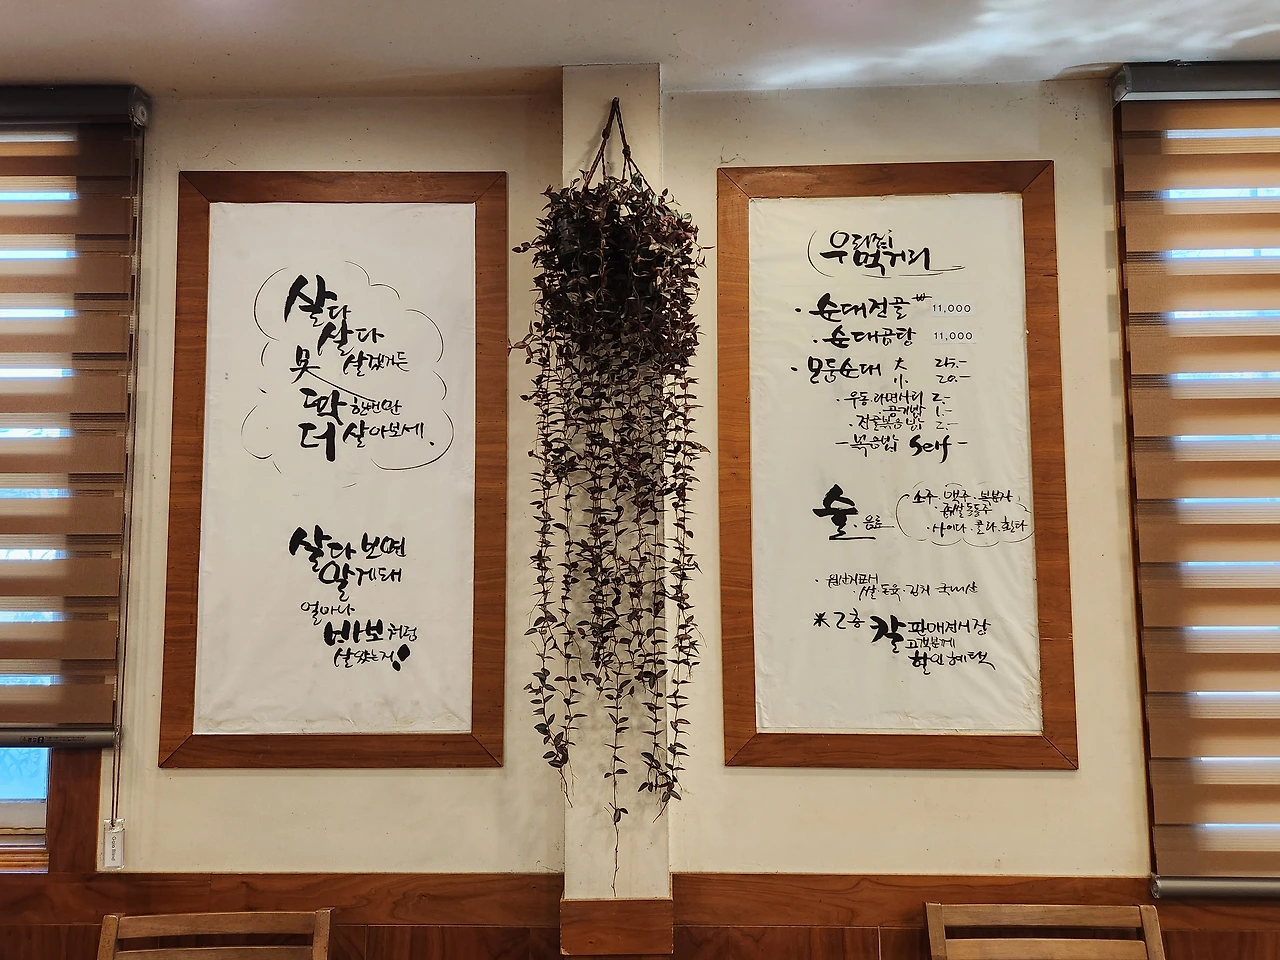 살다
살다
못 살겠거든
딱 한번만
더 살아보세.
살다 보면
알게돼
얼마나
바보처럼
살았는지!
우리집
먹거리
· 순대전골 ₩ 11,000
· 순대곰탕 11,000
· 모둠순대 大 25.-
小 20.-
· 우동.라면사리 2.-
공기밥 1.-
· 전골볶음밥 2.-
- 볶음밥 Self -
술.음료
소주.맥주.복분자
· 찹쌀동동주
· 사이다.콜라.환타
· 원산지표시
쌀.돈육.김치 국내산
※ 2층 칼 판매전시장
고객분께
할인혜택
Goo Blind